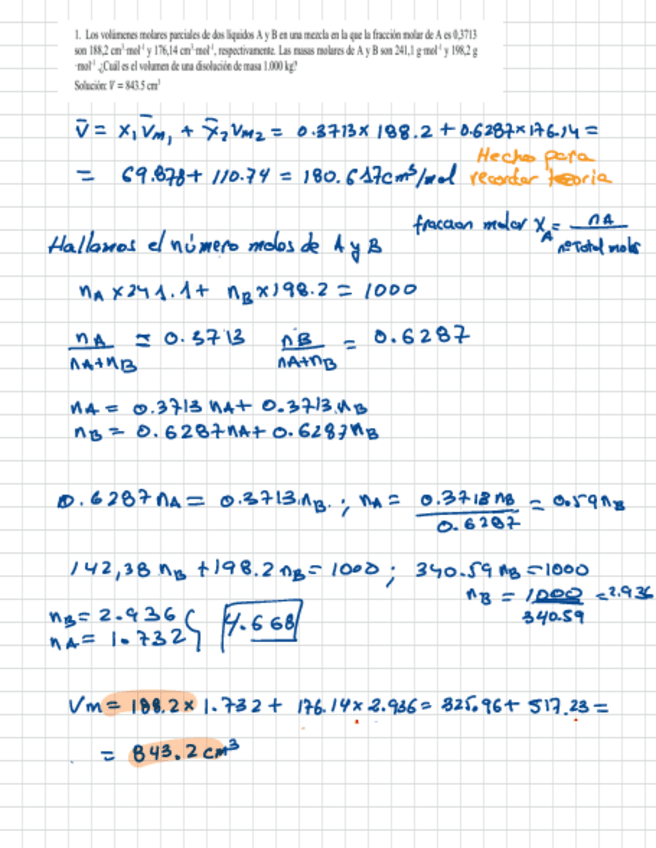 1. Los volúmenes molares parciales de dos líquidos A y B en una mezcla en la que la fracción molar de A es 0,3713
son 188,2 cm³·mol⁻¹ y 176,14 cm³·mol⁻¹, respectivamente. Las masas molares de A y B son 241,1 g·mol⁻¹ y 198,2 g
·mol⁻¹ ¿Cuál es el volumen de una disolución de masa 1.000 kg?
Solución: V = 843.5 cm³
V̄ = x₁V̄m₁ + x̄₂Vm₂ = 0.3713 x 188.2 + 0.6287 x 176.14 =
= 69.878 + 110.74 = 180.617 cm³/mol
Hecho para
recordar teoria
fraccion molar X_A = nA / nº Total mols
Hallamos el número moles de A y B
nA x 241.1 + nB x 198.2 = 1000
nA / nA+nB = 0.3713 nB / nA+nB = 0.6287
nA = 0.3713 nA + 0.3713 nB
nB = 0.6287 nA + 0.6287 nB
0.6287 nA = 0.3713 nB. ; nA = 0.3713 nB / 0.6287 = 0.59 nB
142,38 nB + 198.2 nB = 1000 ; 340.59 nB = 1000
nB = 1000 / 340.59 = 2.936
nB = 2.936
nA = 1.732
4.668
Vm = 188.2 x 1.732 + 176.14 x 2.936 = 325.96 + 517.23 =
= 843.2 cm³